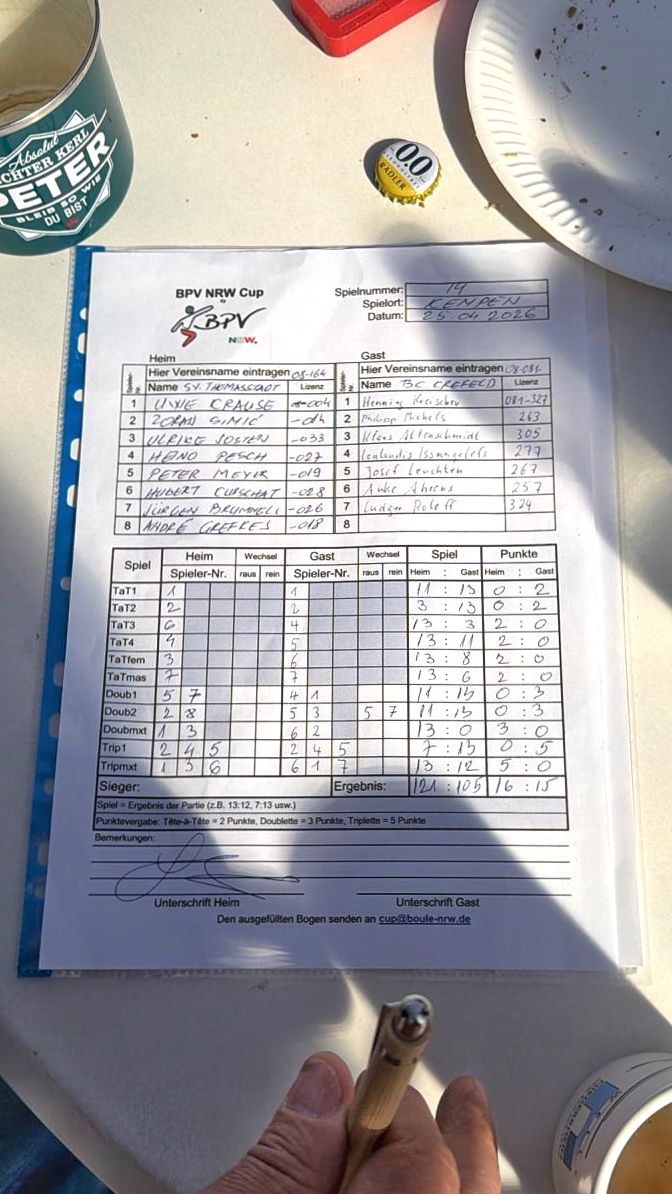 Absolut
ECHTER KERL
PETER
BLEIB SO WIE
DU BIST
0.0
RADLER
BPV NRW Cup
BPV
NRW.
Spielnummer: 14
Spielort: KEMPEN
Datum: 25.04.2026
Heim
Gast
Spieler-Nr.
Hier Vereinsname eintragen 08-164
Spieler-Nr.
Hier Vereinsname eintragen 08-081-
Name SV. THOMASSTADT Lizenz
Name BC CREFELD Lizenz
1 UWE KRAUSE -004 1 Henning 081-327
2 ZORAN SIMIĆ -014 2 Philipp Michels 263
3 ULRIKE JOSTEN -033 3 Klaus Altenschmidt 305
4 HEINO PESCH -027 4 277
5 PETER MEYER -019 5 Josef Leuchten 267
6 HUBERT CURSCHAT -028 6 Anke Ahrens 257
7 JÜRGEN BRUMMELL -026 7 Ludger Roleff 324
8 ANDRÉ GREFKES -018 8
Spiel Heim Wechsel Gast Wechsel Spiel Punkte
Spieler-Nr. raus rein Spieler-Nr. raus rein Heim : Gast Heim : Gast
TaT1 1 1 11 : 13 0 : 2
TaT2 2 2 3 : 13 0 : 2
TaT3 6 4 13 : 3 2 : 0
TaT4 4 5 13 : 11 2 : 0
TaTfem 3 6 13 : 8 2 : 0
TaTmas 7 7 13 : 6 2 : 0
Doub1 5 7 4 1 11 : 13 0 : 3
Doub2 2 8 5 3 5 7 11 : 13 0 : 3
Doubmxt 1 3 6 2 13 : 0 3 : 0
Trip1 2 4 5 2 4 5 7 : 13 0 : 5
Tripmxt 1 3 6 6 1 7 13 : 12 5 : 0
Sieger: Ergebnis: 121 : 105 16 : 15
Spiel = Ergebnis der Partie (z.B. 13:12, 7:13 usw.)
Punktevergabe: Tête-à-Tête = 2 Punkte, Doublette = 3 Punkte, Triplette = 5 Punkte
Bemerkungen:
Unterschrift Heim
Unterschrift Gast
Den ausgefüllten Bogen senden an cup@boule-nrw.de